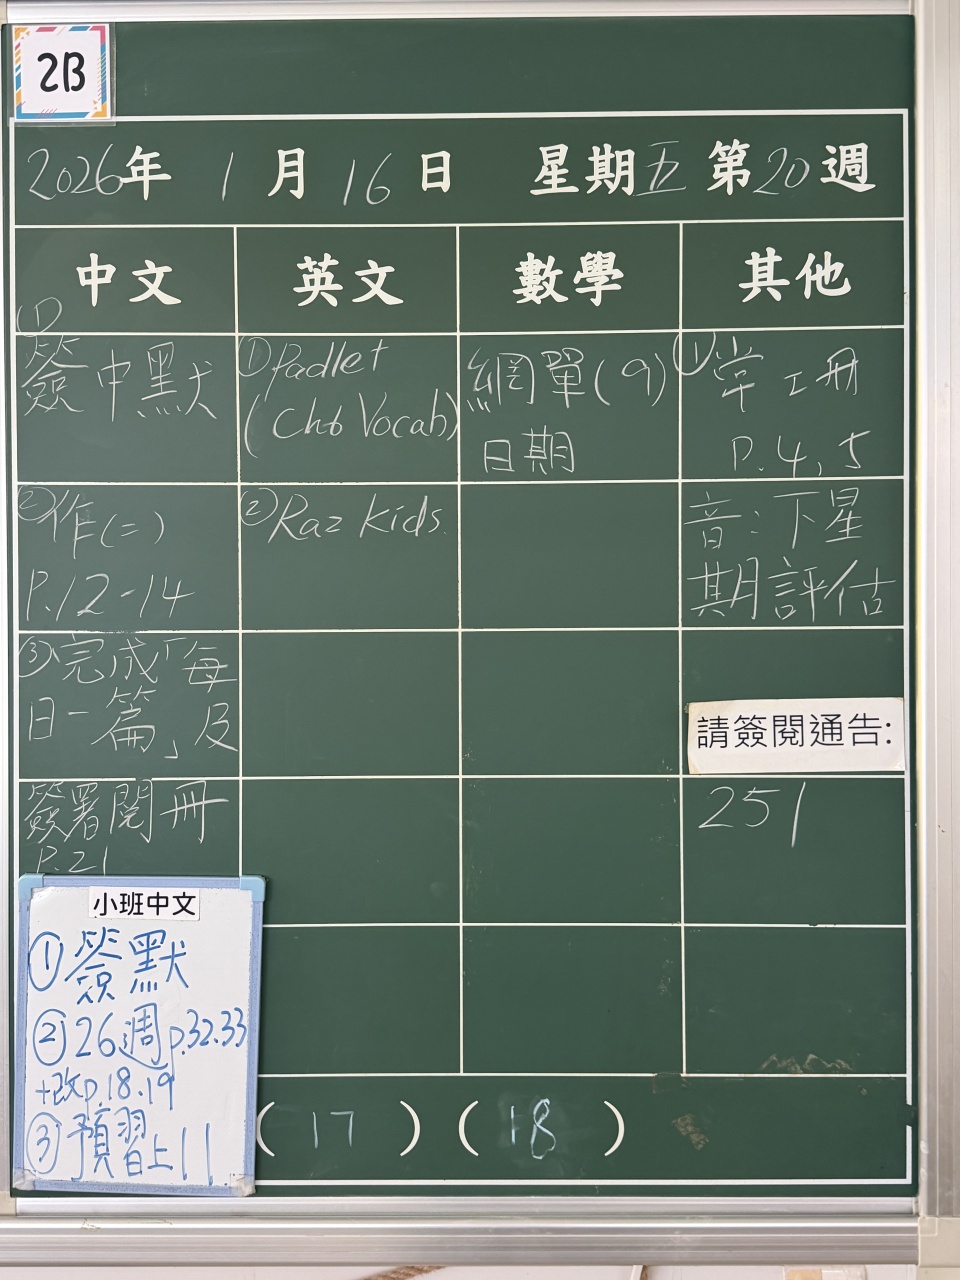 2B
2026年 1月 16日 星期五 第20週
中文 英文 數學 其他
① 簽中默
② 作(二)
P.12-14
③ 完成「每
日一篇」及
簽署閱冊
P.21
① Padlet
(Ch6 Vocab)
② Raz Kids
網單(9)
日期
① 常工冊
P.4,5
音:下星
期評估
請簽閱通告:
251
小班中文
① 簽默
② 26週p.32.33
+改p.18.19
③ 預習上11
( 17 ) ( 18 )